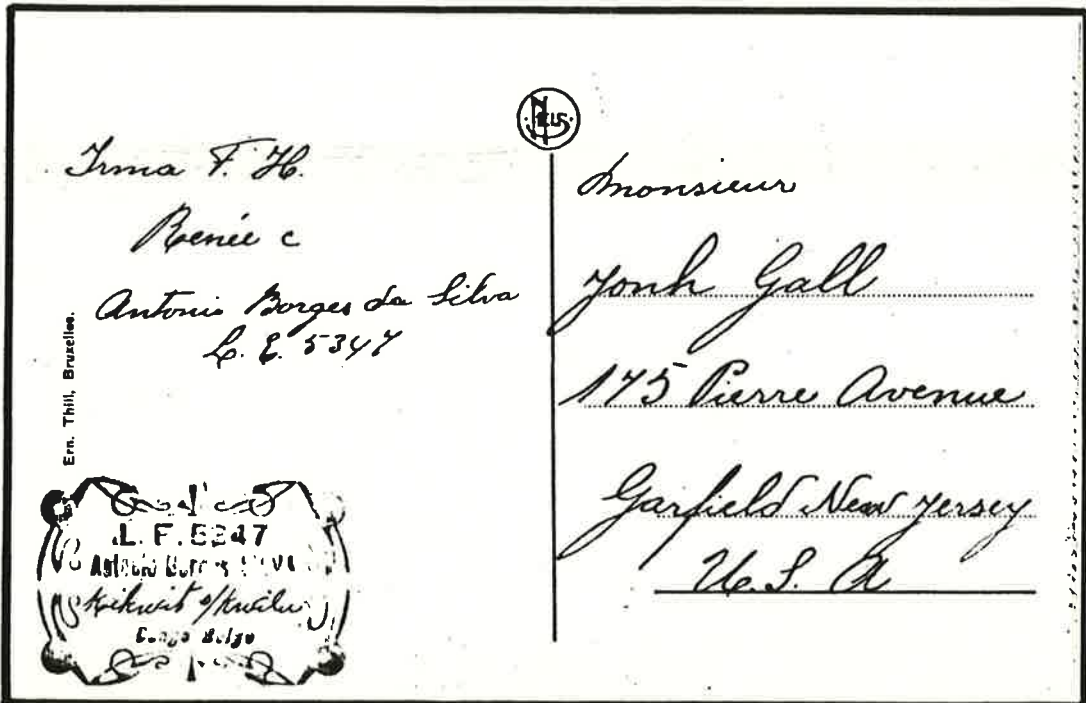 Irma F. H.
Renée c
Antonio Borges da Silva
L. E. 5347
Ern. Thill, Bruxelles.
L. F. 5347
Antonio Borges SILVA
Kikwit s/Kwilu
Congo Belge
NELS
Monsieur
Jonh Gall
175 Pierre Avenue
Garfield New Jersey
U. S. A